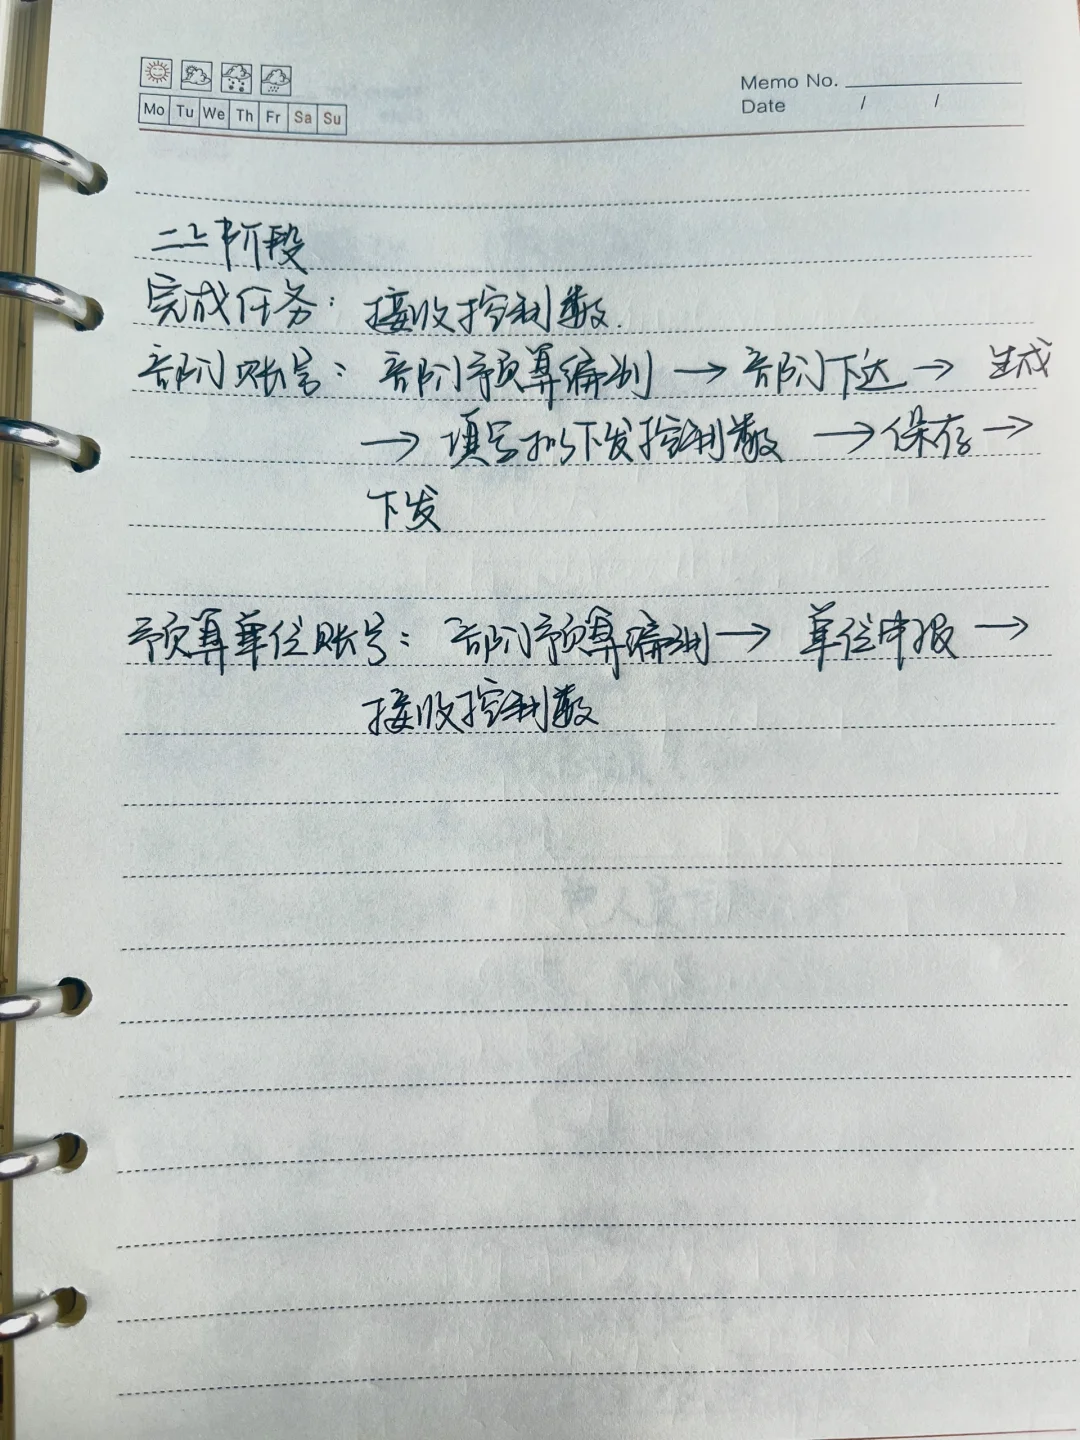 Mo Tu We Th Fr Sa Su
Memo No.
Date / /
二上阶段
完成任务：接收控制数.
部门账号：部门预算编制 → 部门下达 → 生成
→ 填写拟下发控制数 → 保存 →
下发
预算单位账号：部门预算编制 → 单位申报 →
接收控制数